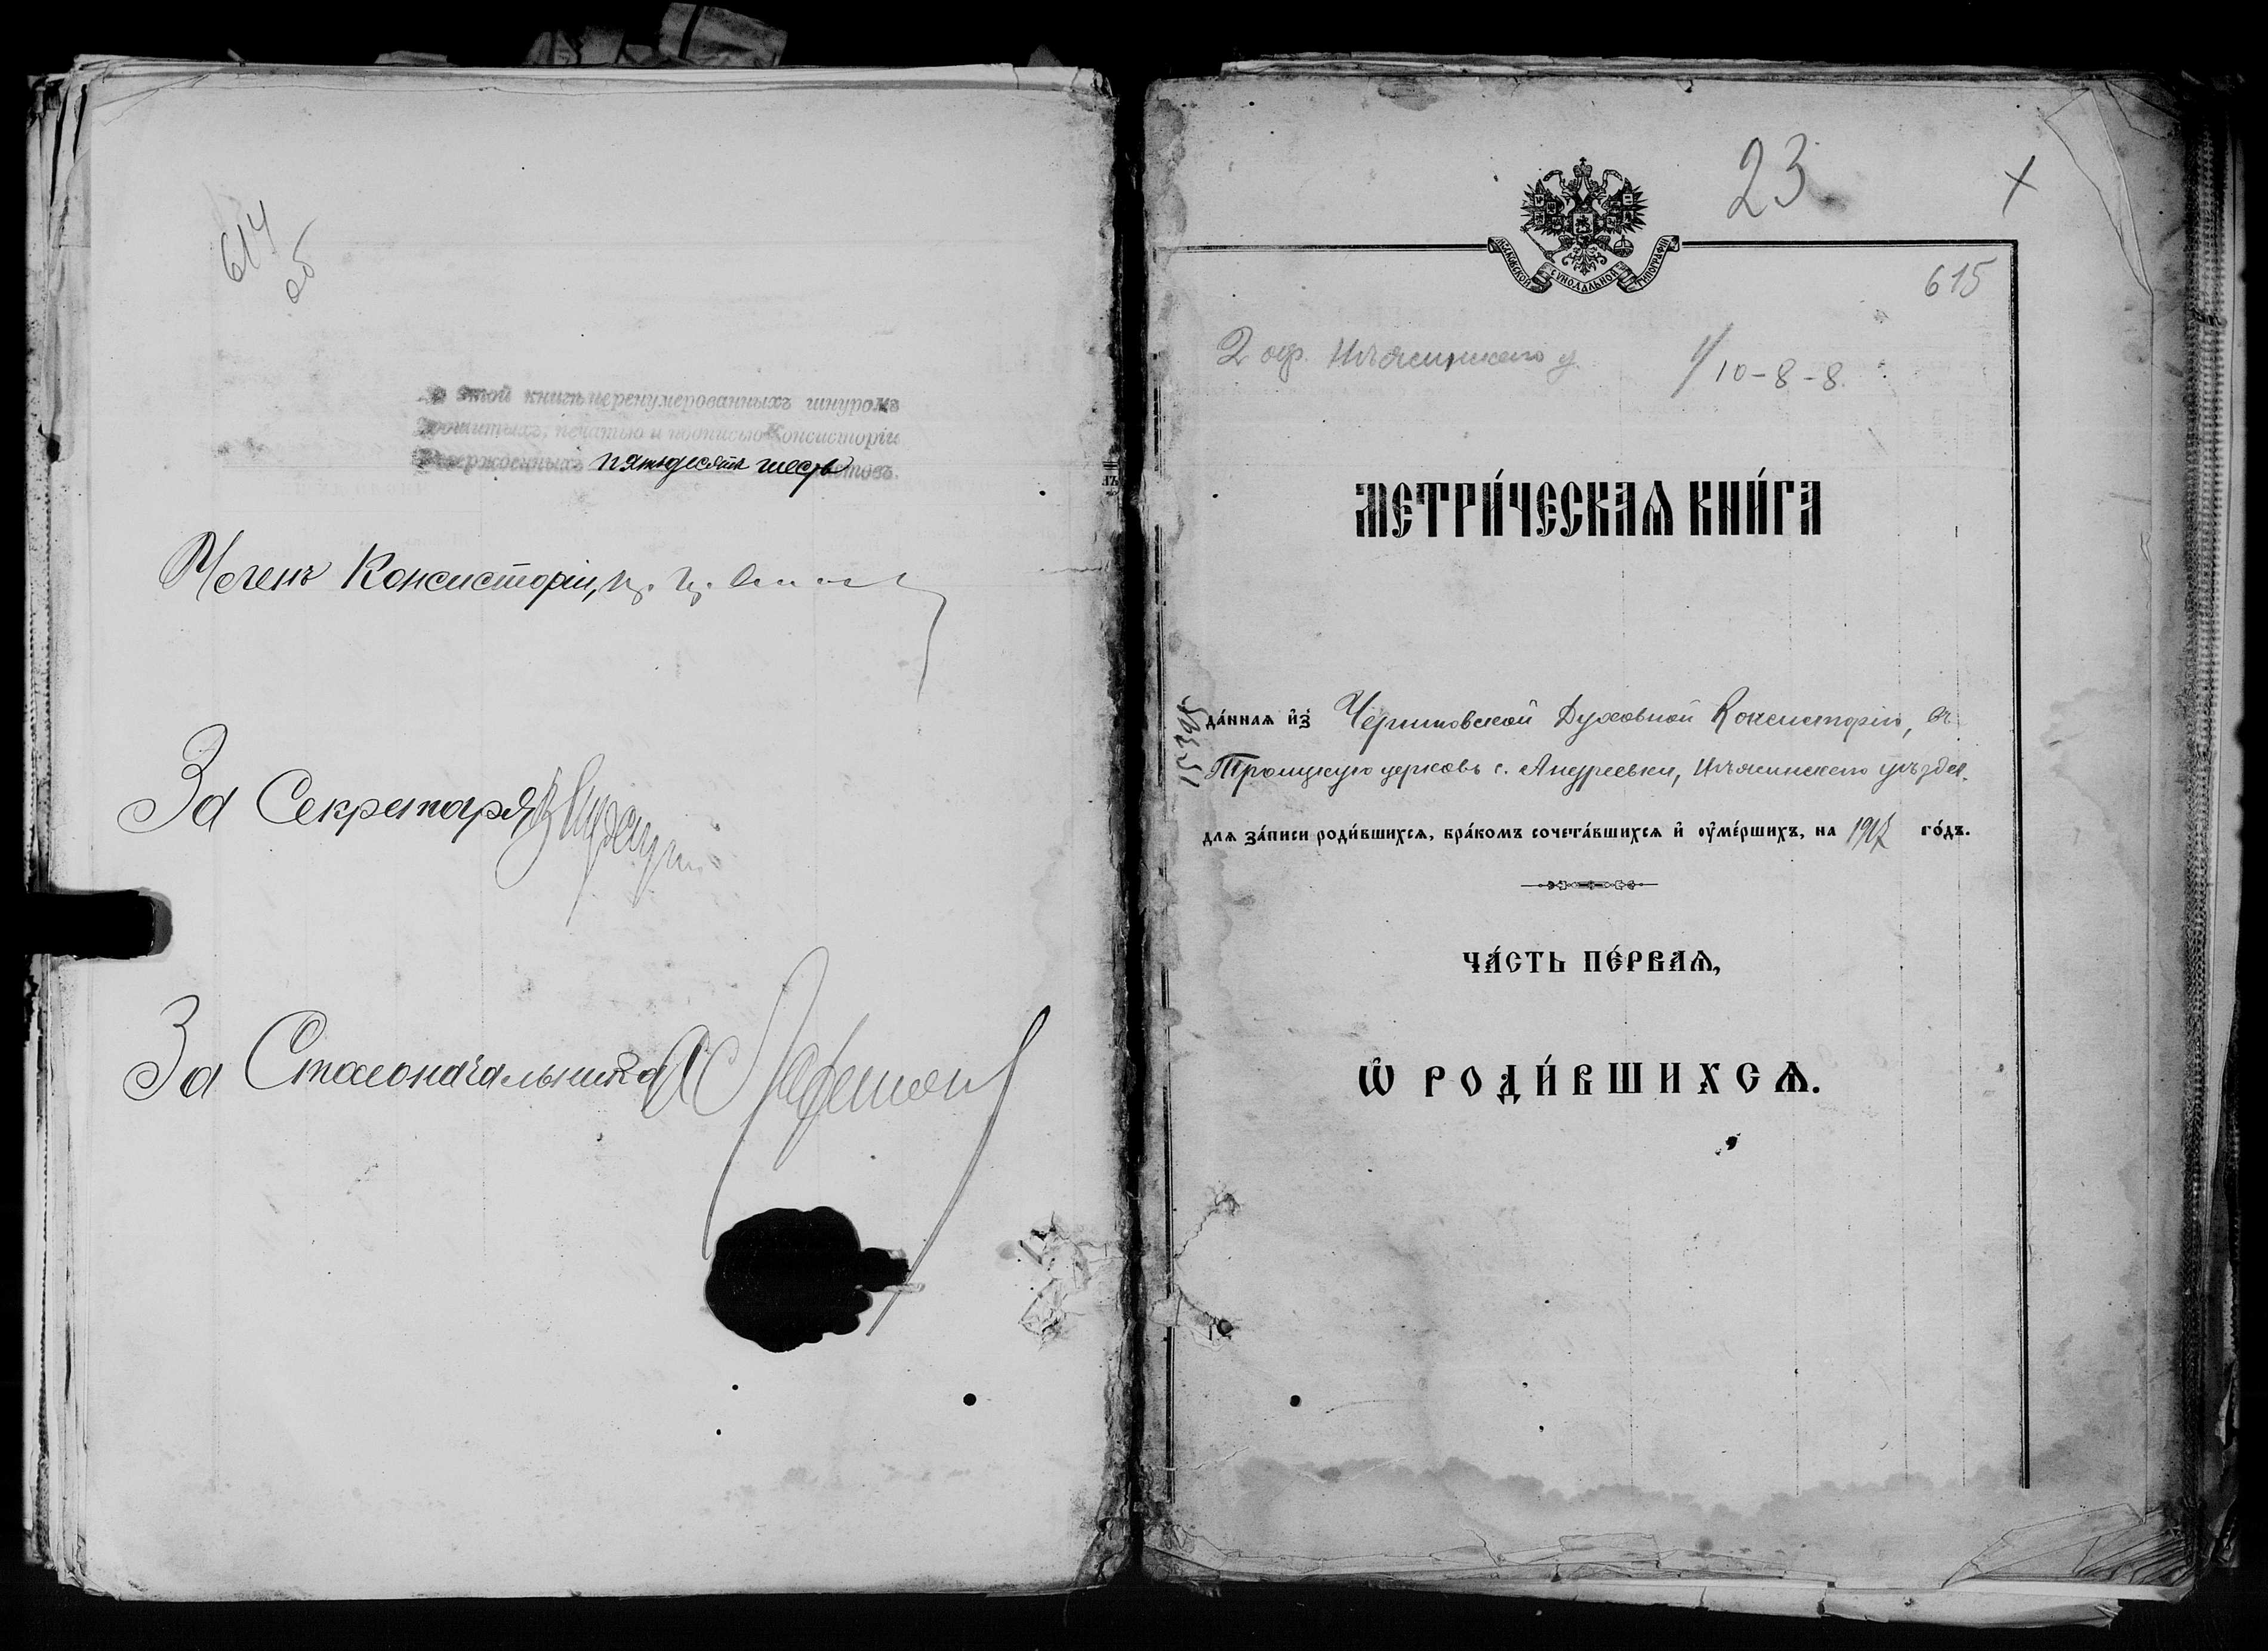 614
об
В этой книгѣ перенумерованныхъ шнуромъ
прошитыхъ, печатью и подписью Консисторіи
утвержденныхъ пятьдесятъ шесть листовъ.
Членъ Консисторіи,
За Секретаря
За Столоначальника
23
МОСКОВСКОЙ СУНОДАЛЬНОЙ ТИПОГРАФІИ
615
2 оф. Нѣжинскаго у.
1/10-8-8.
МЕТРИ́ЧЕСКАѦ КНИ́ГА
15395
да́ннаѧ и҆з̾ Черниговской Духовной Консисторіи, въ
Троицкую церковь с. Андреевки, Нѣжинскаго уѣзда.
длѧ за́писи роди́вшихсѧ, бра́комъ сочета́вшихсѧ и҆ оу҆ме́ршихъ, на 1917 го́дъ.
ЧА́СТЬ ПЕ́РВАѦ,
Ѡ҆ РОДИ́ВШИХСѦ.